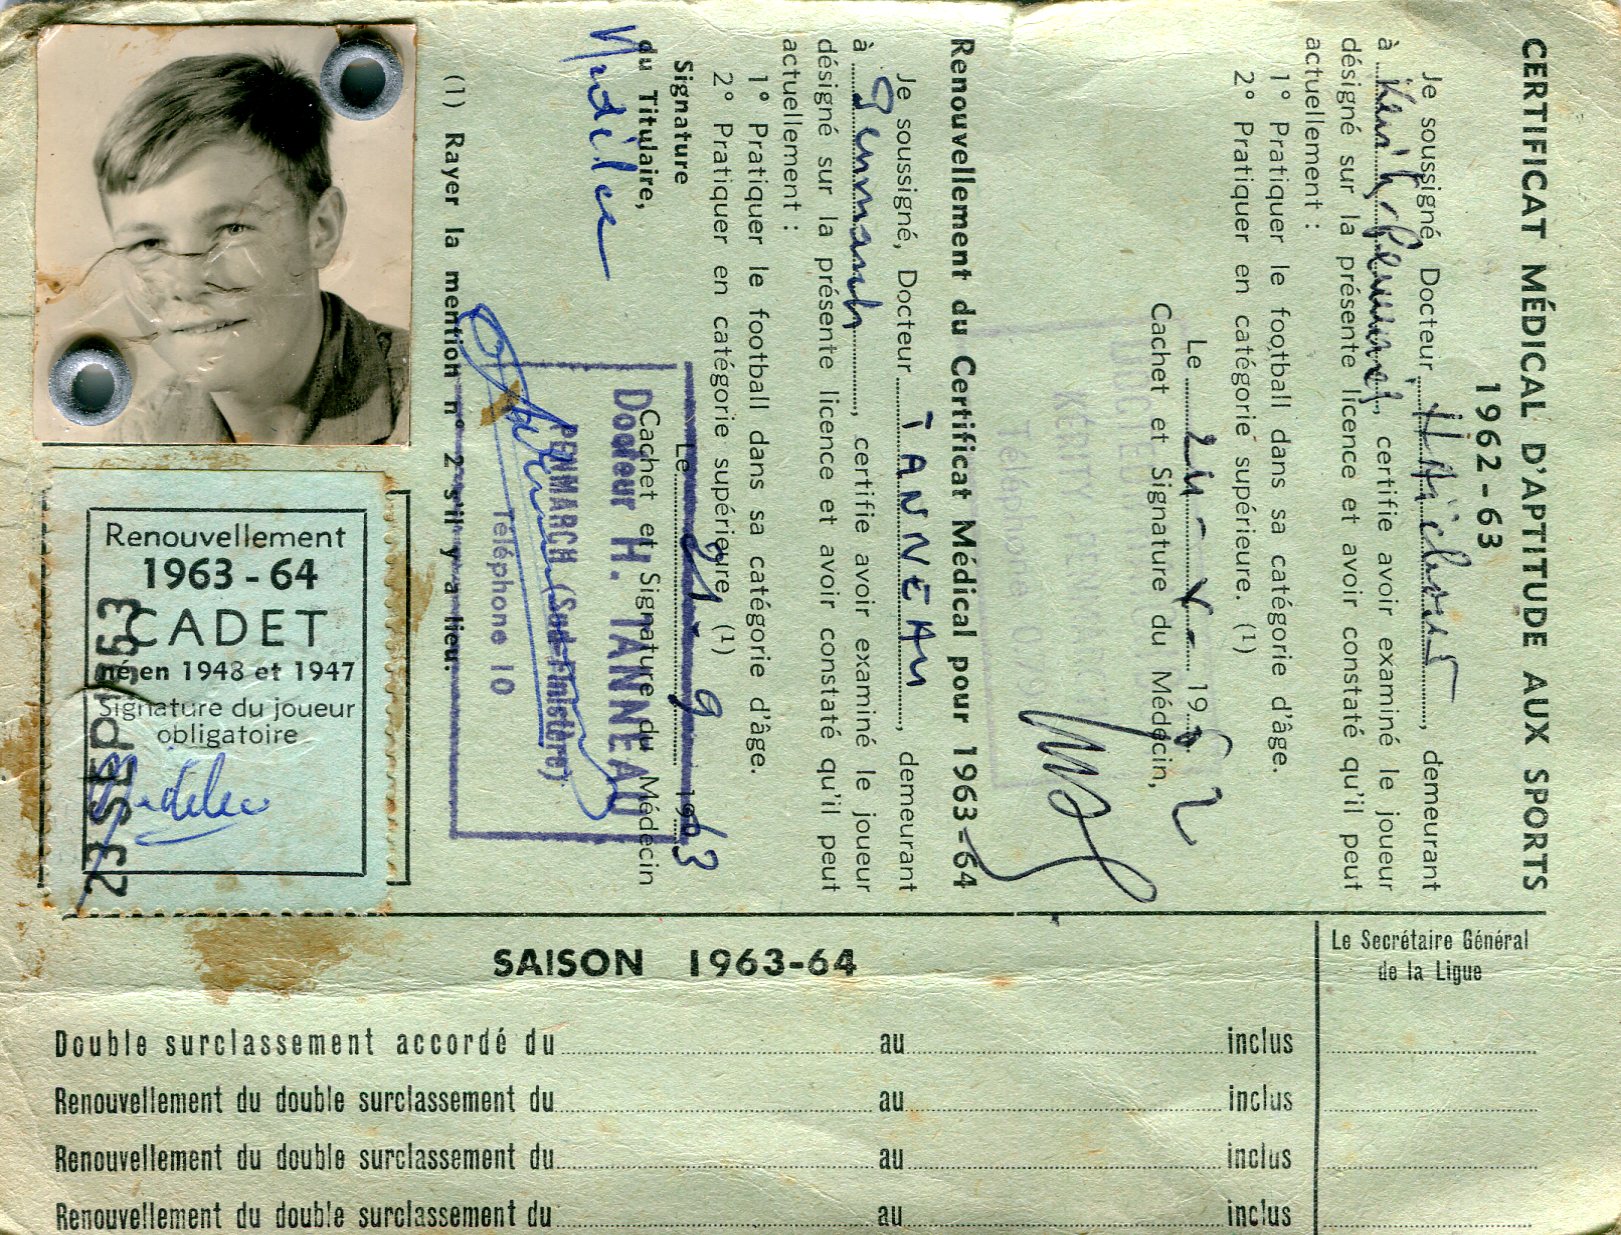 CERTIFICAT MÉDICAL D'APTITUDE AUX SPORTS
1962-63
Je soussigné, Docteur, demeurant
à, certifie avoir examiné le joueur
désigné sur la présente licence et avoir constaté qu'il peut
actuellement :
1° Pratiquer le football dans sa catégorie d'âge.
2° Pratiquer en catégorie supérieure. (1)
Le 24-X- 1962
Cachet et Signature du Médecin,
Renouvellement du Certificat Médical pour 1963-64
Je soussigné, Docteur TANNEAU, demeurant
à Penmarch, certifie avoir examiné le joueur
désigné sur la présente licence et avoir constaté qu'il peut
actuellement :
1° Pratiquer le football dans sa catégorie d'âge.
2° Pratiquer en catégorie supérieure. (1)
Signature
du Titulaire,
Le 9 1963
Cachet et Signature du Médecin
Docteur H. TANNEAU
PENMARCH (Sud-Finistère)
Téléphone 10
(1) Rayer la mention n° 2 s'il y a lieu.
Renouvellement
1963-64
CADET
né en 1948 et 1947
Signature du joueur
obligatoire
23 SEP 1963
SAISON 1963-64
Le Secrétaire Général
de la Ligue
Double surclassement accordé du au inclus
Renouvellement du double surclassement du au inclus
Renouvellement du double surclassement du au inclus
Renouvellement du double surclassement du au inclus